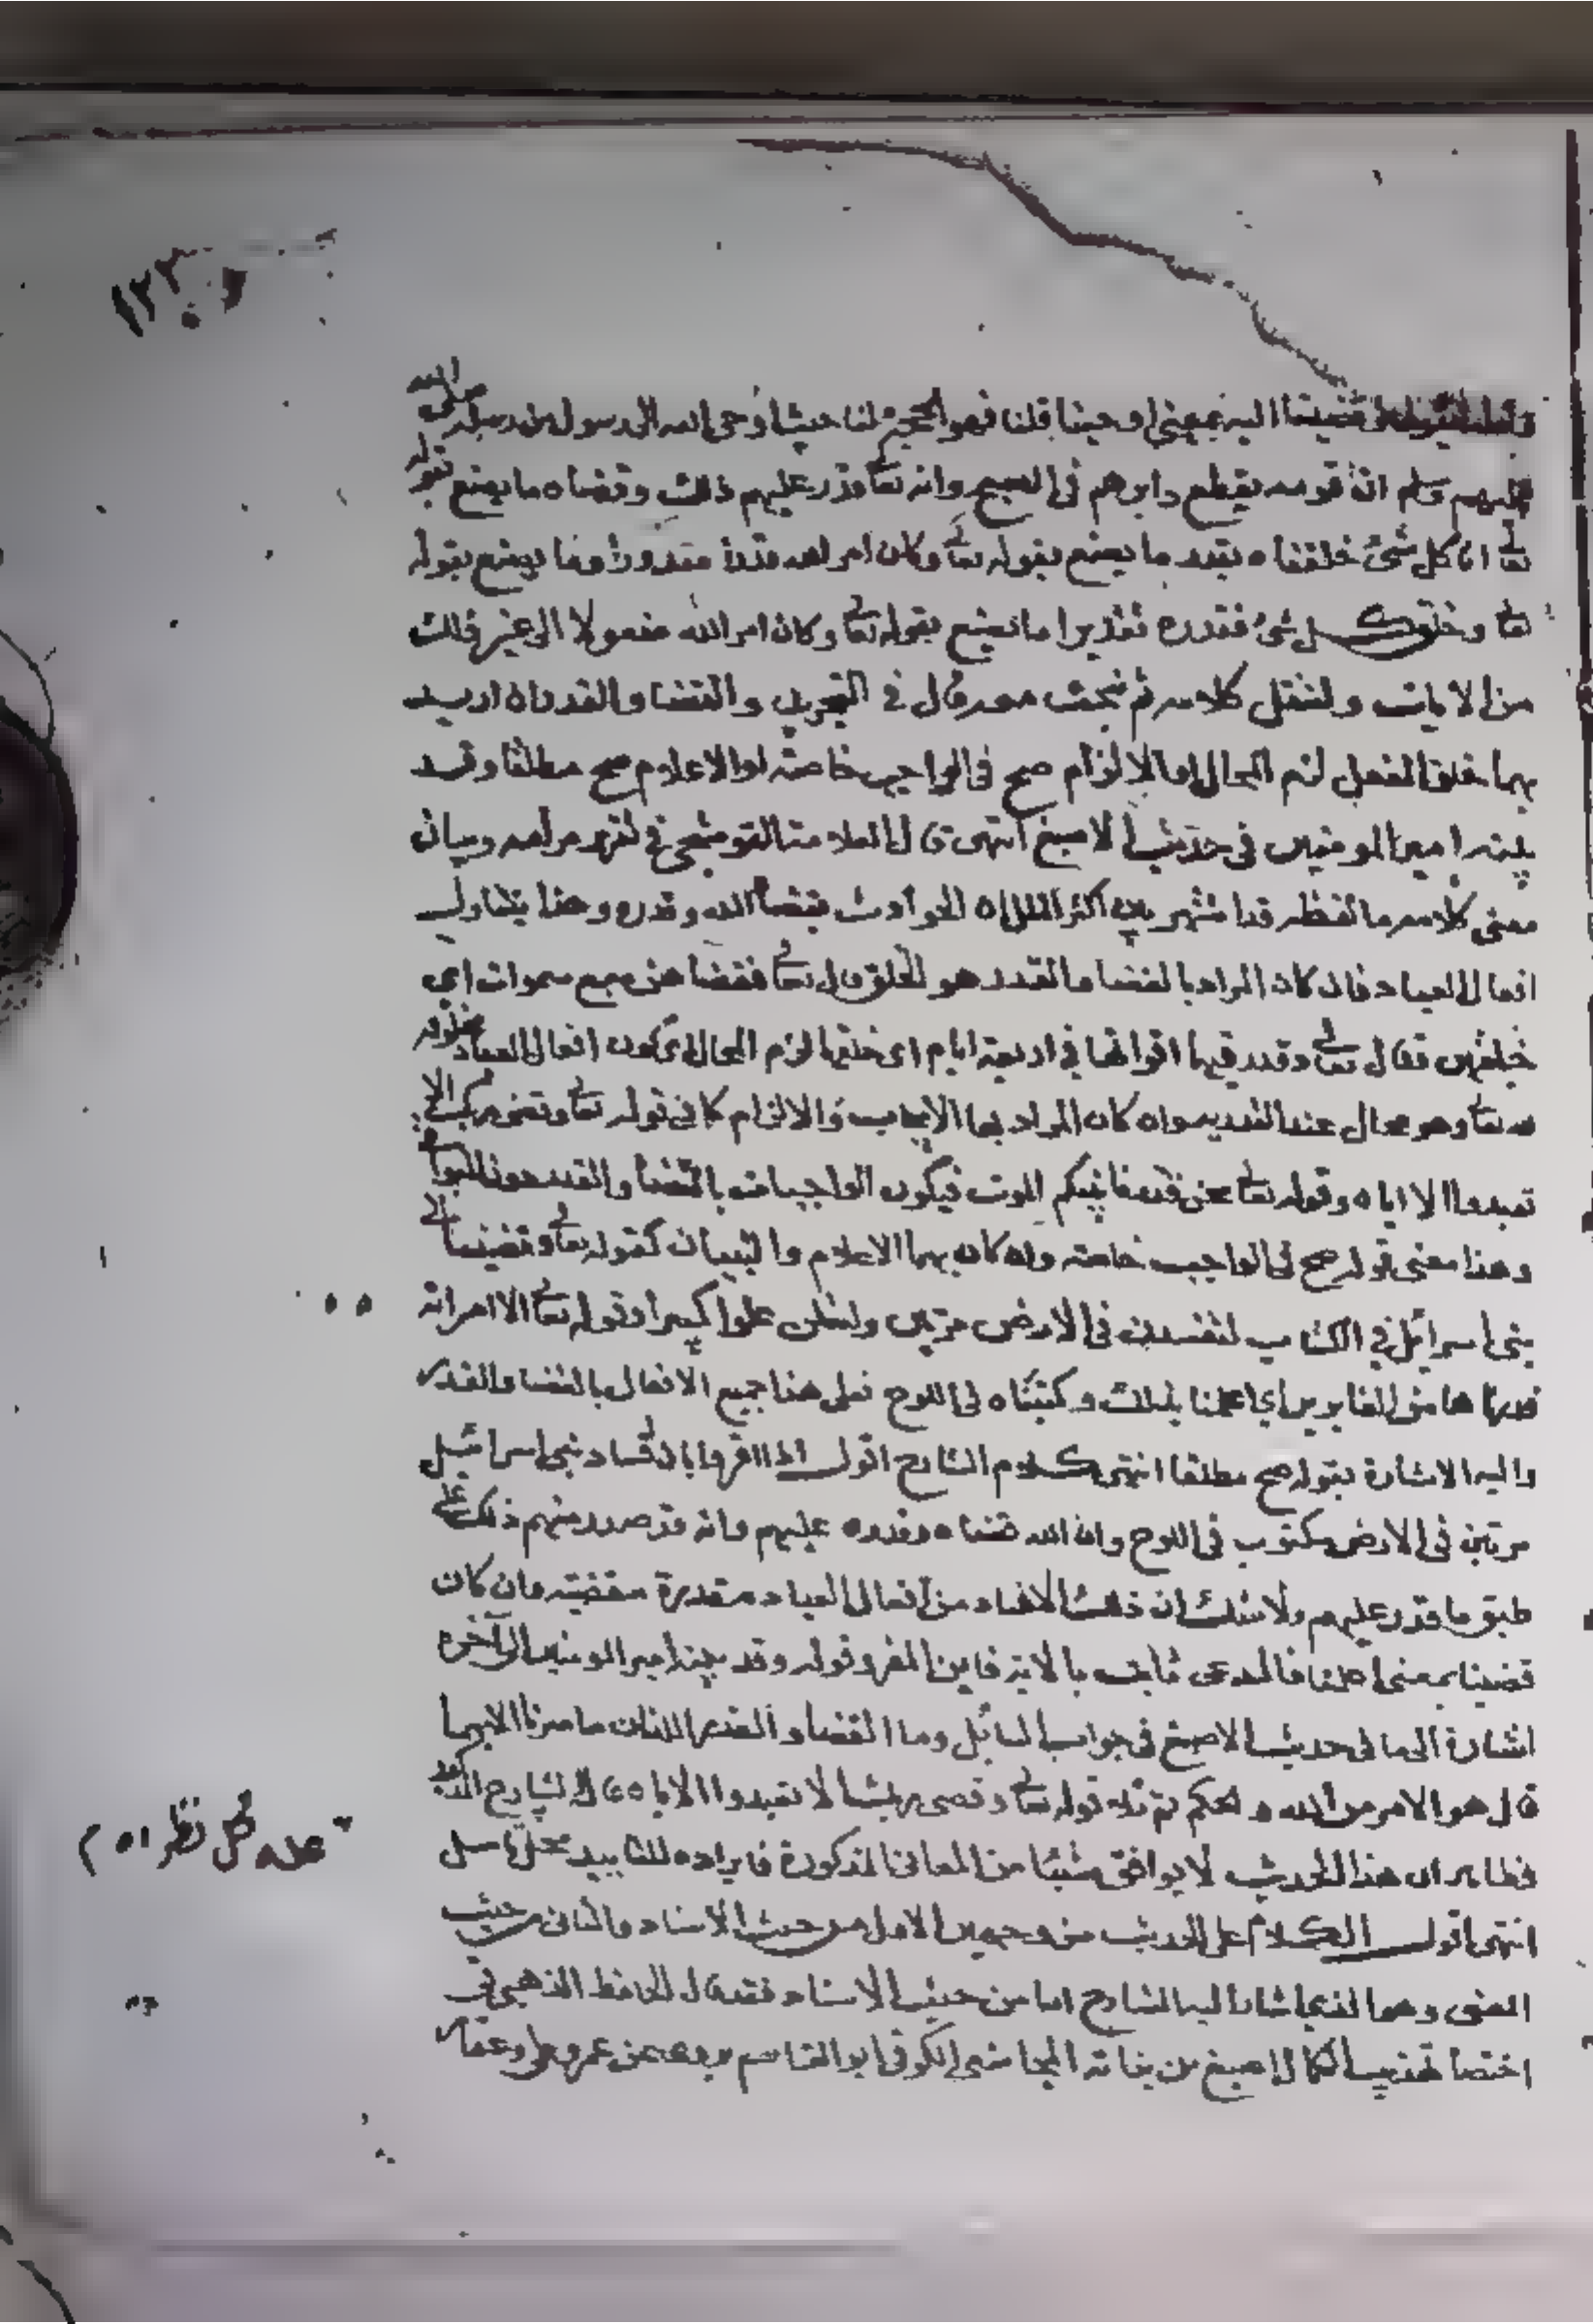 ١٢٣
قضينا اليه بمعنى اوحينا قلنا فهو الحجة لنا حيث اوحى الله الى رسول من رسله صلى الله
عليهم وسلم ان قومه يقطع دابرهم في الصبح وانه تعا قدر عليهم ذلك وقضاه ما يصنع بقوله
تعالى انا كل شئ خلقناه بقدر ما يصنع بقوله تعالى وكان امر الله قدرا مقدورا وما يصنع بقوله
تعالى وخلق كل شئ فقدره تقديرا ما يصنع بقوله تعالى وكان امر الله مفعولا الى غير ذلك
من الايات ولننقل كلامه ثم نبحث معه قال في التجريد والقضا والقدر ان اريد
بهما خلق الفعل لزم المحال او الالزام صح في الواجب خاصة او الاعلام صح مطلقا وقد
بينه امير المومنين في حديث الاصبغ انتهى قال العلامة القوشجي في تقرير مرامه وبيان
معنى كلامه ما لفظه قد اشتهر بين اكثر الملل ان الحوادث بقضا الله وقدره وهذا يتناول
افعال العباد فان كان المراد بالقضا والقدر هو الخلق قال تعالى فقضاهن سبع سموات اي
خلقهن فقال تعالى وقدر فيها اقواتها في اربعة ايام اى خلقها لزم المحال اى كون افعال العباد مخلوقه
لله تعالى وهو محال عند القدريه وان كان المراد بهما الايجاب والالزام كما في قوله تعالى وقضى ربك الا
تعبدوا الا اياه وقوله تعالى نحن قدرنا بينكم الموت فيكون الواجبات بالقضا والقدر دون البواقي
وهذا معنى قوله صح في الواجب خاصة وان كان بهما الاعلام والتبيان كقوله تعالى وقضينا الى
بنى اسرائل في الكتاب لتفسدن في الارض مرتين ولتعلن علوا كبيرا وقوله تعالى الا امراته
قدرناها من الغابرين اي اعلمنا بذلك وكتبناه في اللوح فعلى هذا جميع الافعال بالقضا والقدر
واليه الاشارة بقوله صح مطلقا انتهى كلام الشارح اقول اذا اقروا بان فساد بني اسرائيل
مرتين في الارض مكتوب في اللوح وان الله قضاه وقدره عليهم وانه قد صدر منهم ذلك على
طبق ما قدر عليهم ولا شك ان ذلك الافساد من افعال العباد مقدرة مقضيته فان كان
قضينا بمعنى اعلمنا فالمدعى ثابت بالاية فاين المفر وقوله وقد بينه امير المومنين الى آخره
اشارة الى ما في حديث الاصبغ في جواب السائل وما القضا والقدر اللذان ما سرنا الا بهما
قال هو الامر من الله والحكم ثم تلا قوله تعالى وقضى ربك الا تعبدوا الا اياه قال الشارح
فظاهر ان هذا الحديث لا يوافق شيئا من المعاني المذكورة فايراده للتاييد محل تامل
انتهى اقول الكلام على الحديث من وجهين الاول من حيث الاسناد والثاني من حيث
المعنى وهو الذي اشار اليه الشارح اما من حيث الاسناد فقد قال الحافظ الذهبي في
اختصار تهذيب الكمال اصبغ بن نباته المجاشعي الكوفي ابو القاسم يروى عن عمر وعلي وعمار
محل نظر